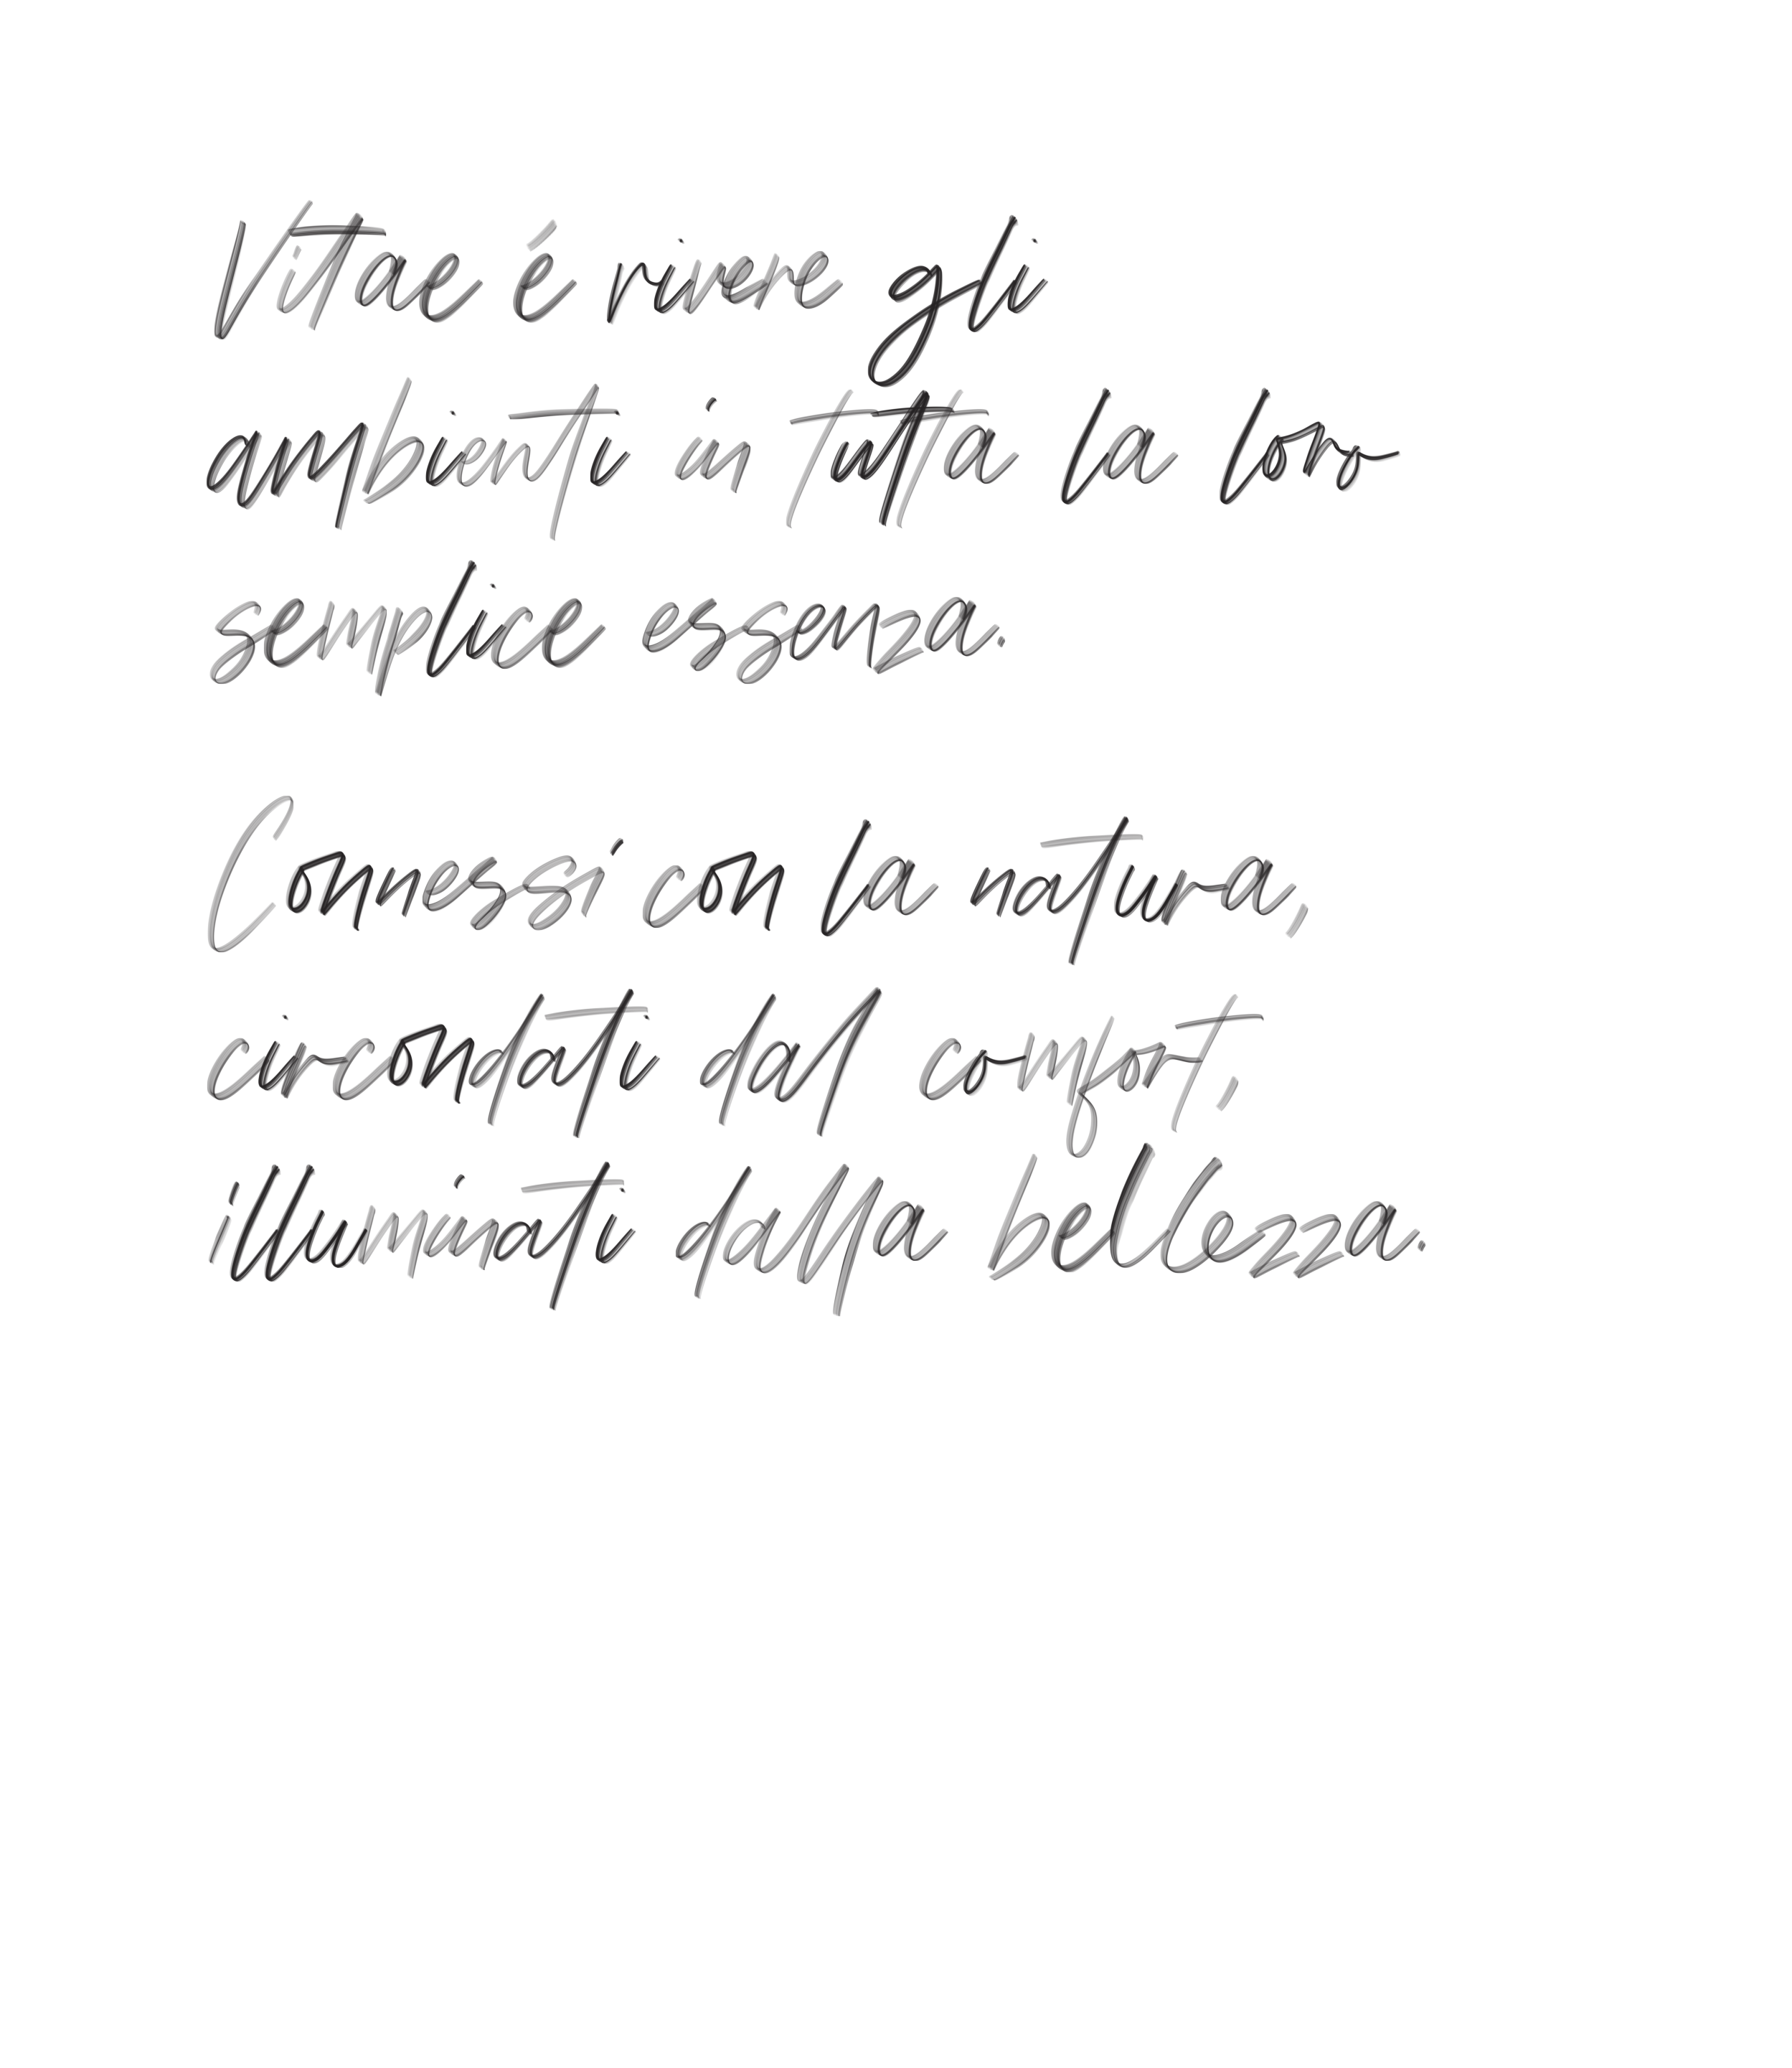 Vitae é vivere gli
ambienti in tutta la loro
semplice essenza.
Connessi con la natura,
circondati dal comfort,
illuminati dalla bellezza.